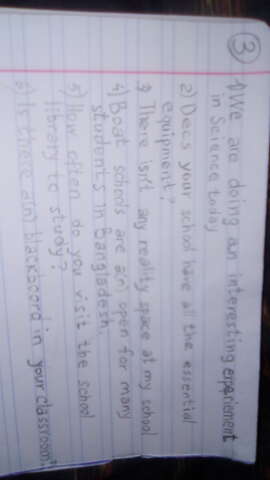 3
1) We are doing an interesting experiement
in Science today
2) Does your school have all the essential
equipment?
3 There isn't any reality space at my school
4) Boat schools are a(n) open for many
students in Bangladesh.
5) How often do you visit the school
library to study?
6) Is there a(n) blackboord in your classroom?